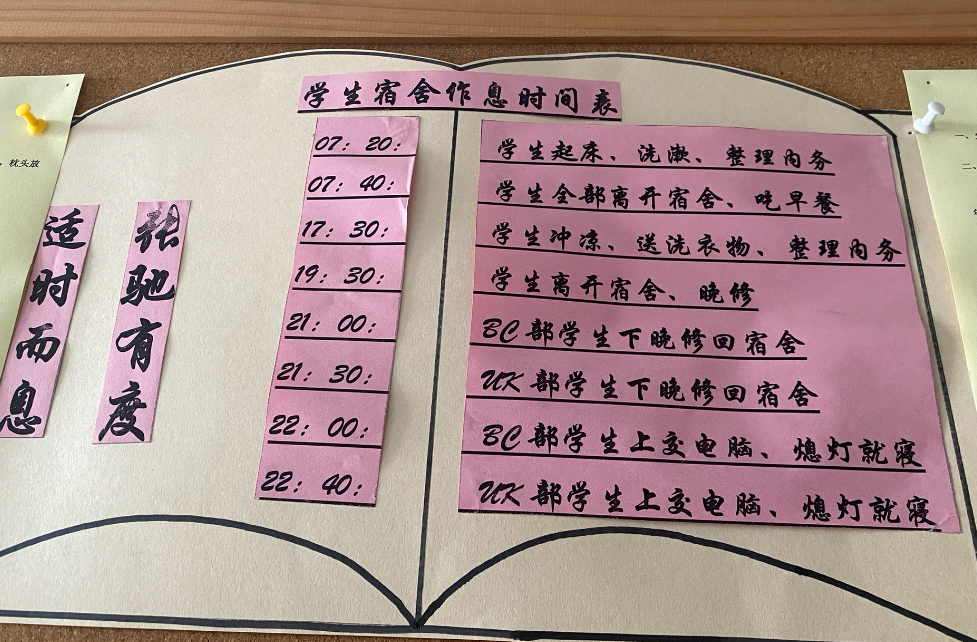 学生宿舍作息时间表
07：20：
学生起床、洗漱、整理内务
07：40：
学生全部离开宿舍、吃早餐
17：30：
学生冲凉、送洗衣物、整理内务
19：30：
学生离开宿舍、晚修
21：00：
BC部学生下晚修回宿舍
21：30：
UK部学生下晚修回宿舍
22：00：
BC部学生上交电脑、熄灯就寝
22：40：
UK部学生上交电脑、熄灯就寝
张驰有度
适时而息
，枕头放
一、
二、